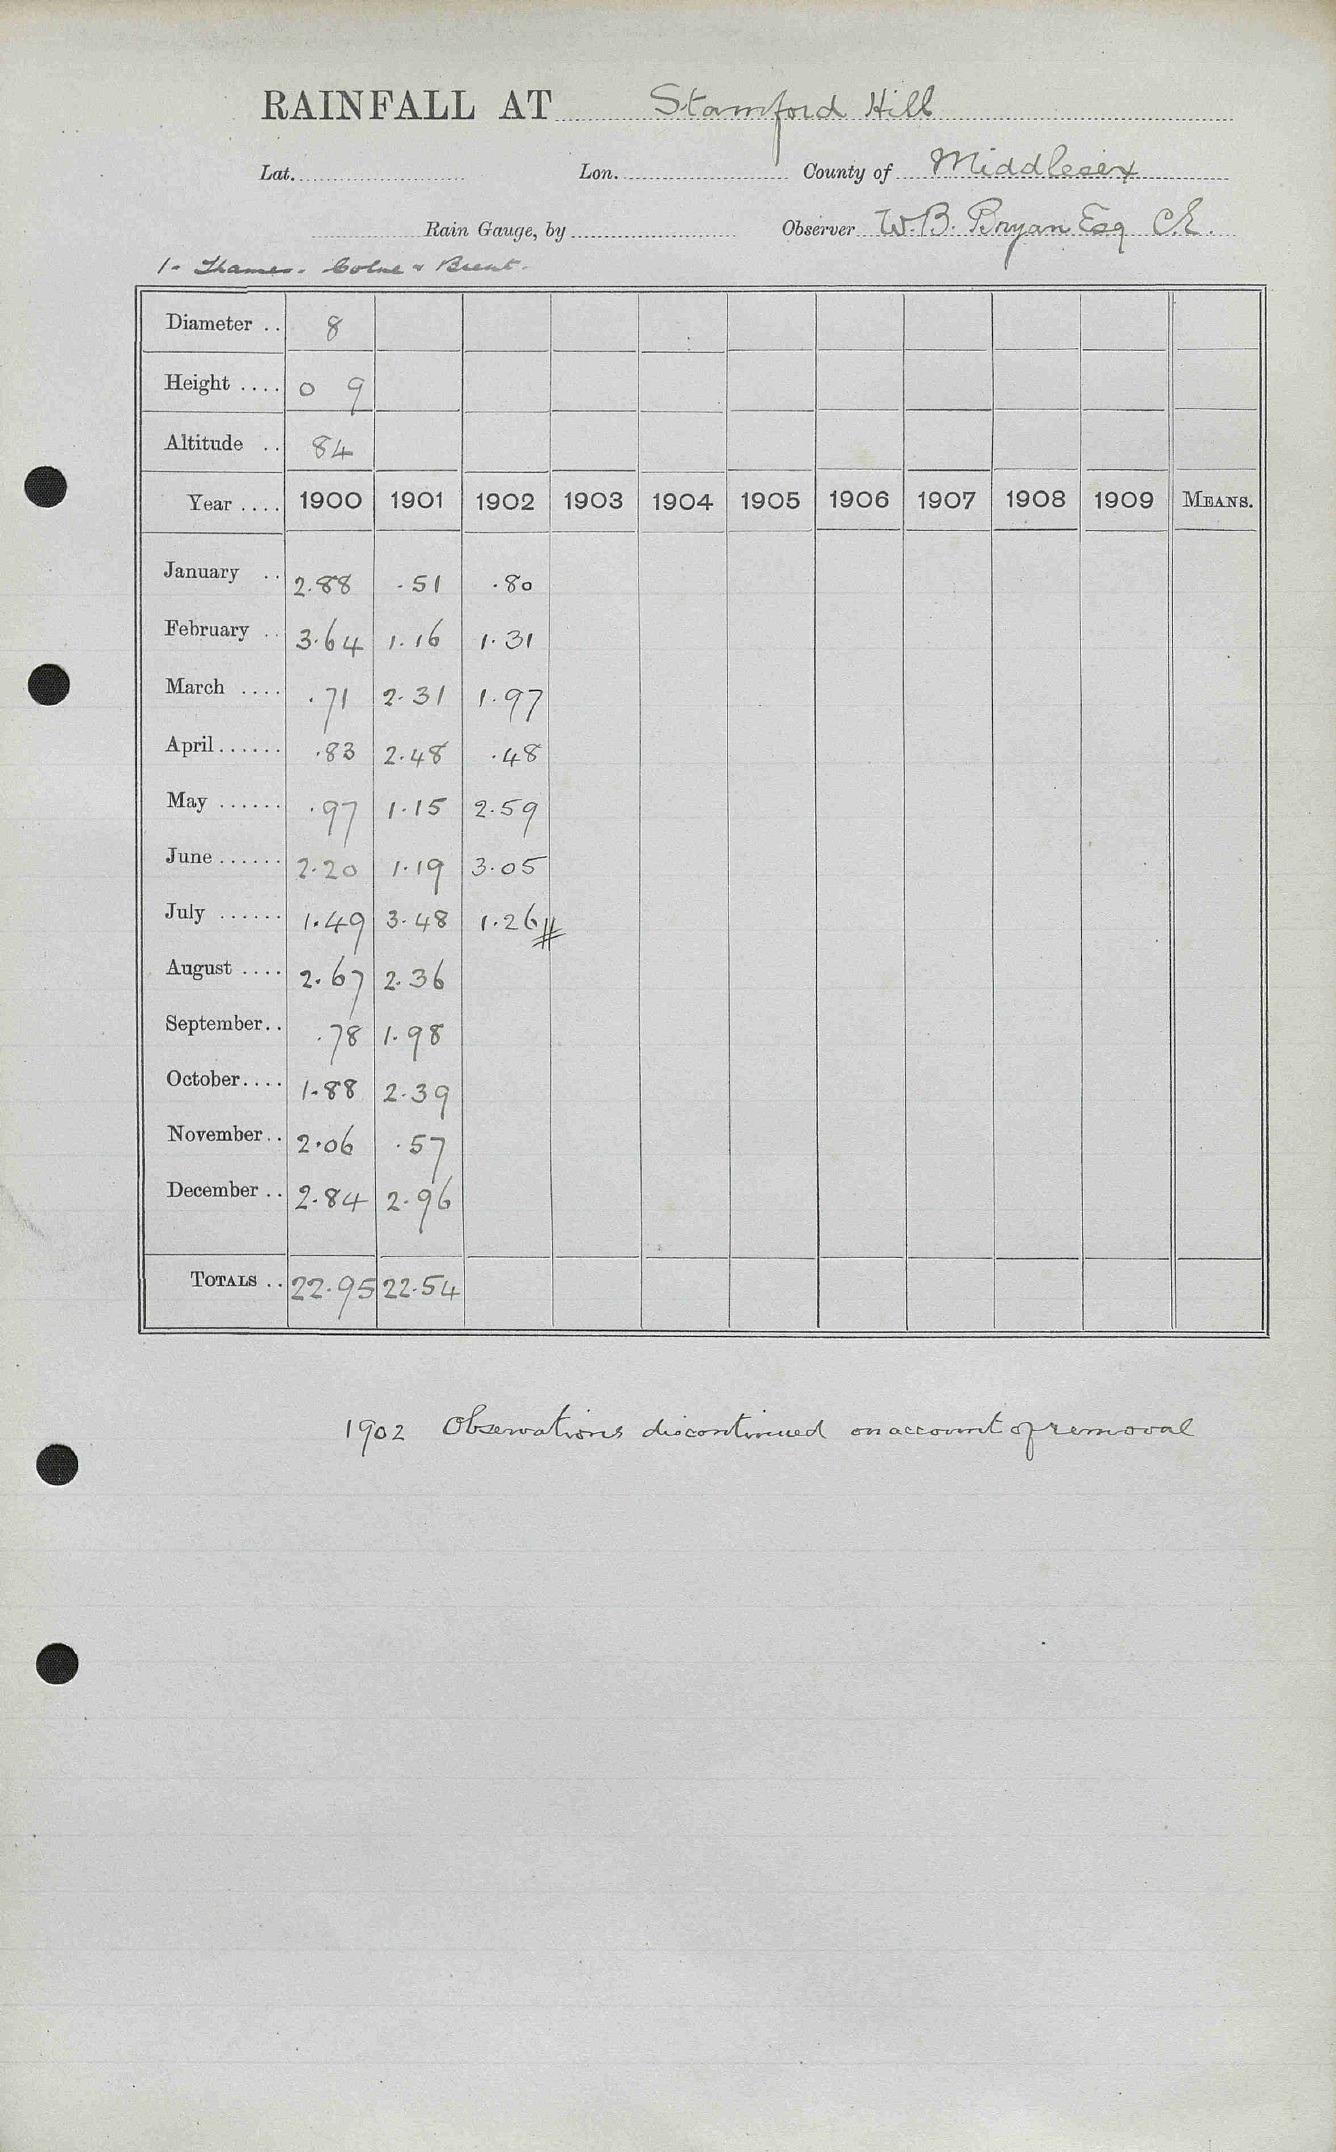 RAINFALL AT Stamford Hill
Lat. Lon. County of Middlesex
Rain Gauge, by Observer W.B. Bryan Esq C.E.
1 - Thames - Colne & Brent -
Diameter .. 8
Height .... 0 9
Altitude .. 84
Year .... 1900 1901 1902 1903 1904 1905 1906 1907 1908 1909 MEANS.
January .. 2.88 .51 .80
February .. 3.64 1.16 1.31
March .... .71 2.31 1.97
April...... .83 2.48 .48
May ...... .97 1.15 2.59
June ...... 2.20 1.19 3.05
July ...... 1.49 3.48 1.26
August .... 2.67 2.36
September.. .78 1.98
October.... 1.88 2.39
November.. 2.06 .57
December .. 2.84 2.96
TOTALS .. 22.95 22.54
1902 Observations discontinued on account of removal